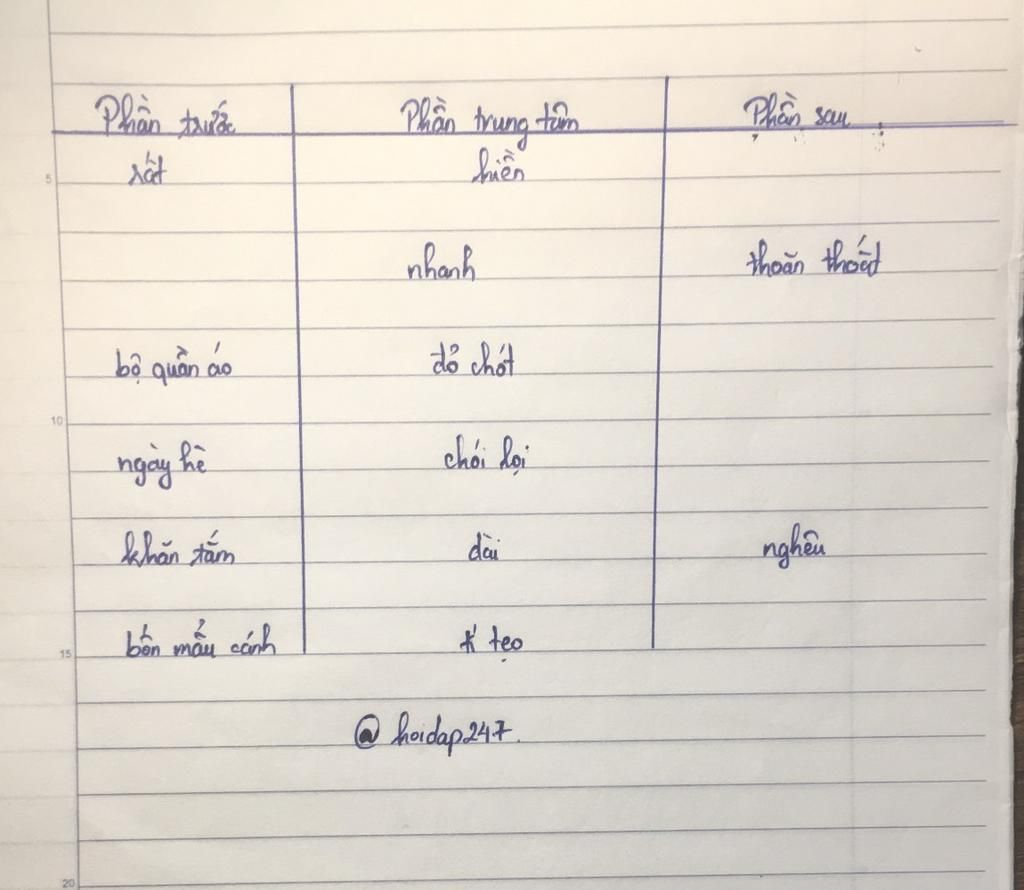 Phần trước Phần trung tâm Phần sau
rất hiền
nhanh thoăn thoắt
bộ quần áo đỏ chót
ngày hè chói lọi
khăn tắm dài nghêu
bốn mẩu cánh tí tẹo
@ hoidap247.
5
10
15
20